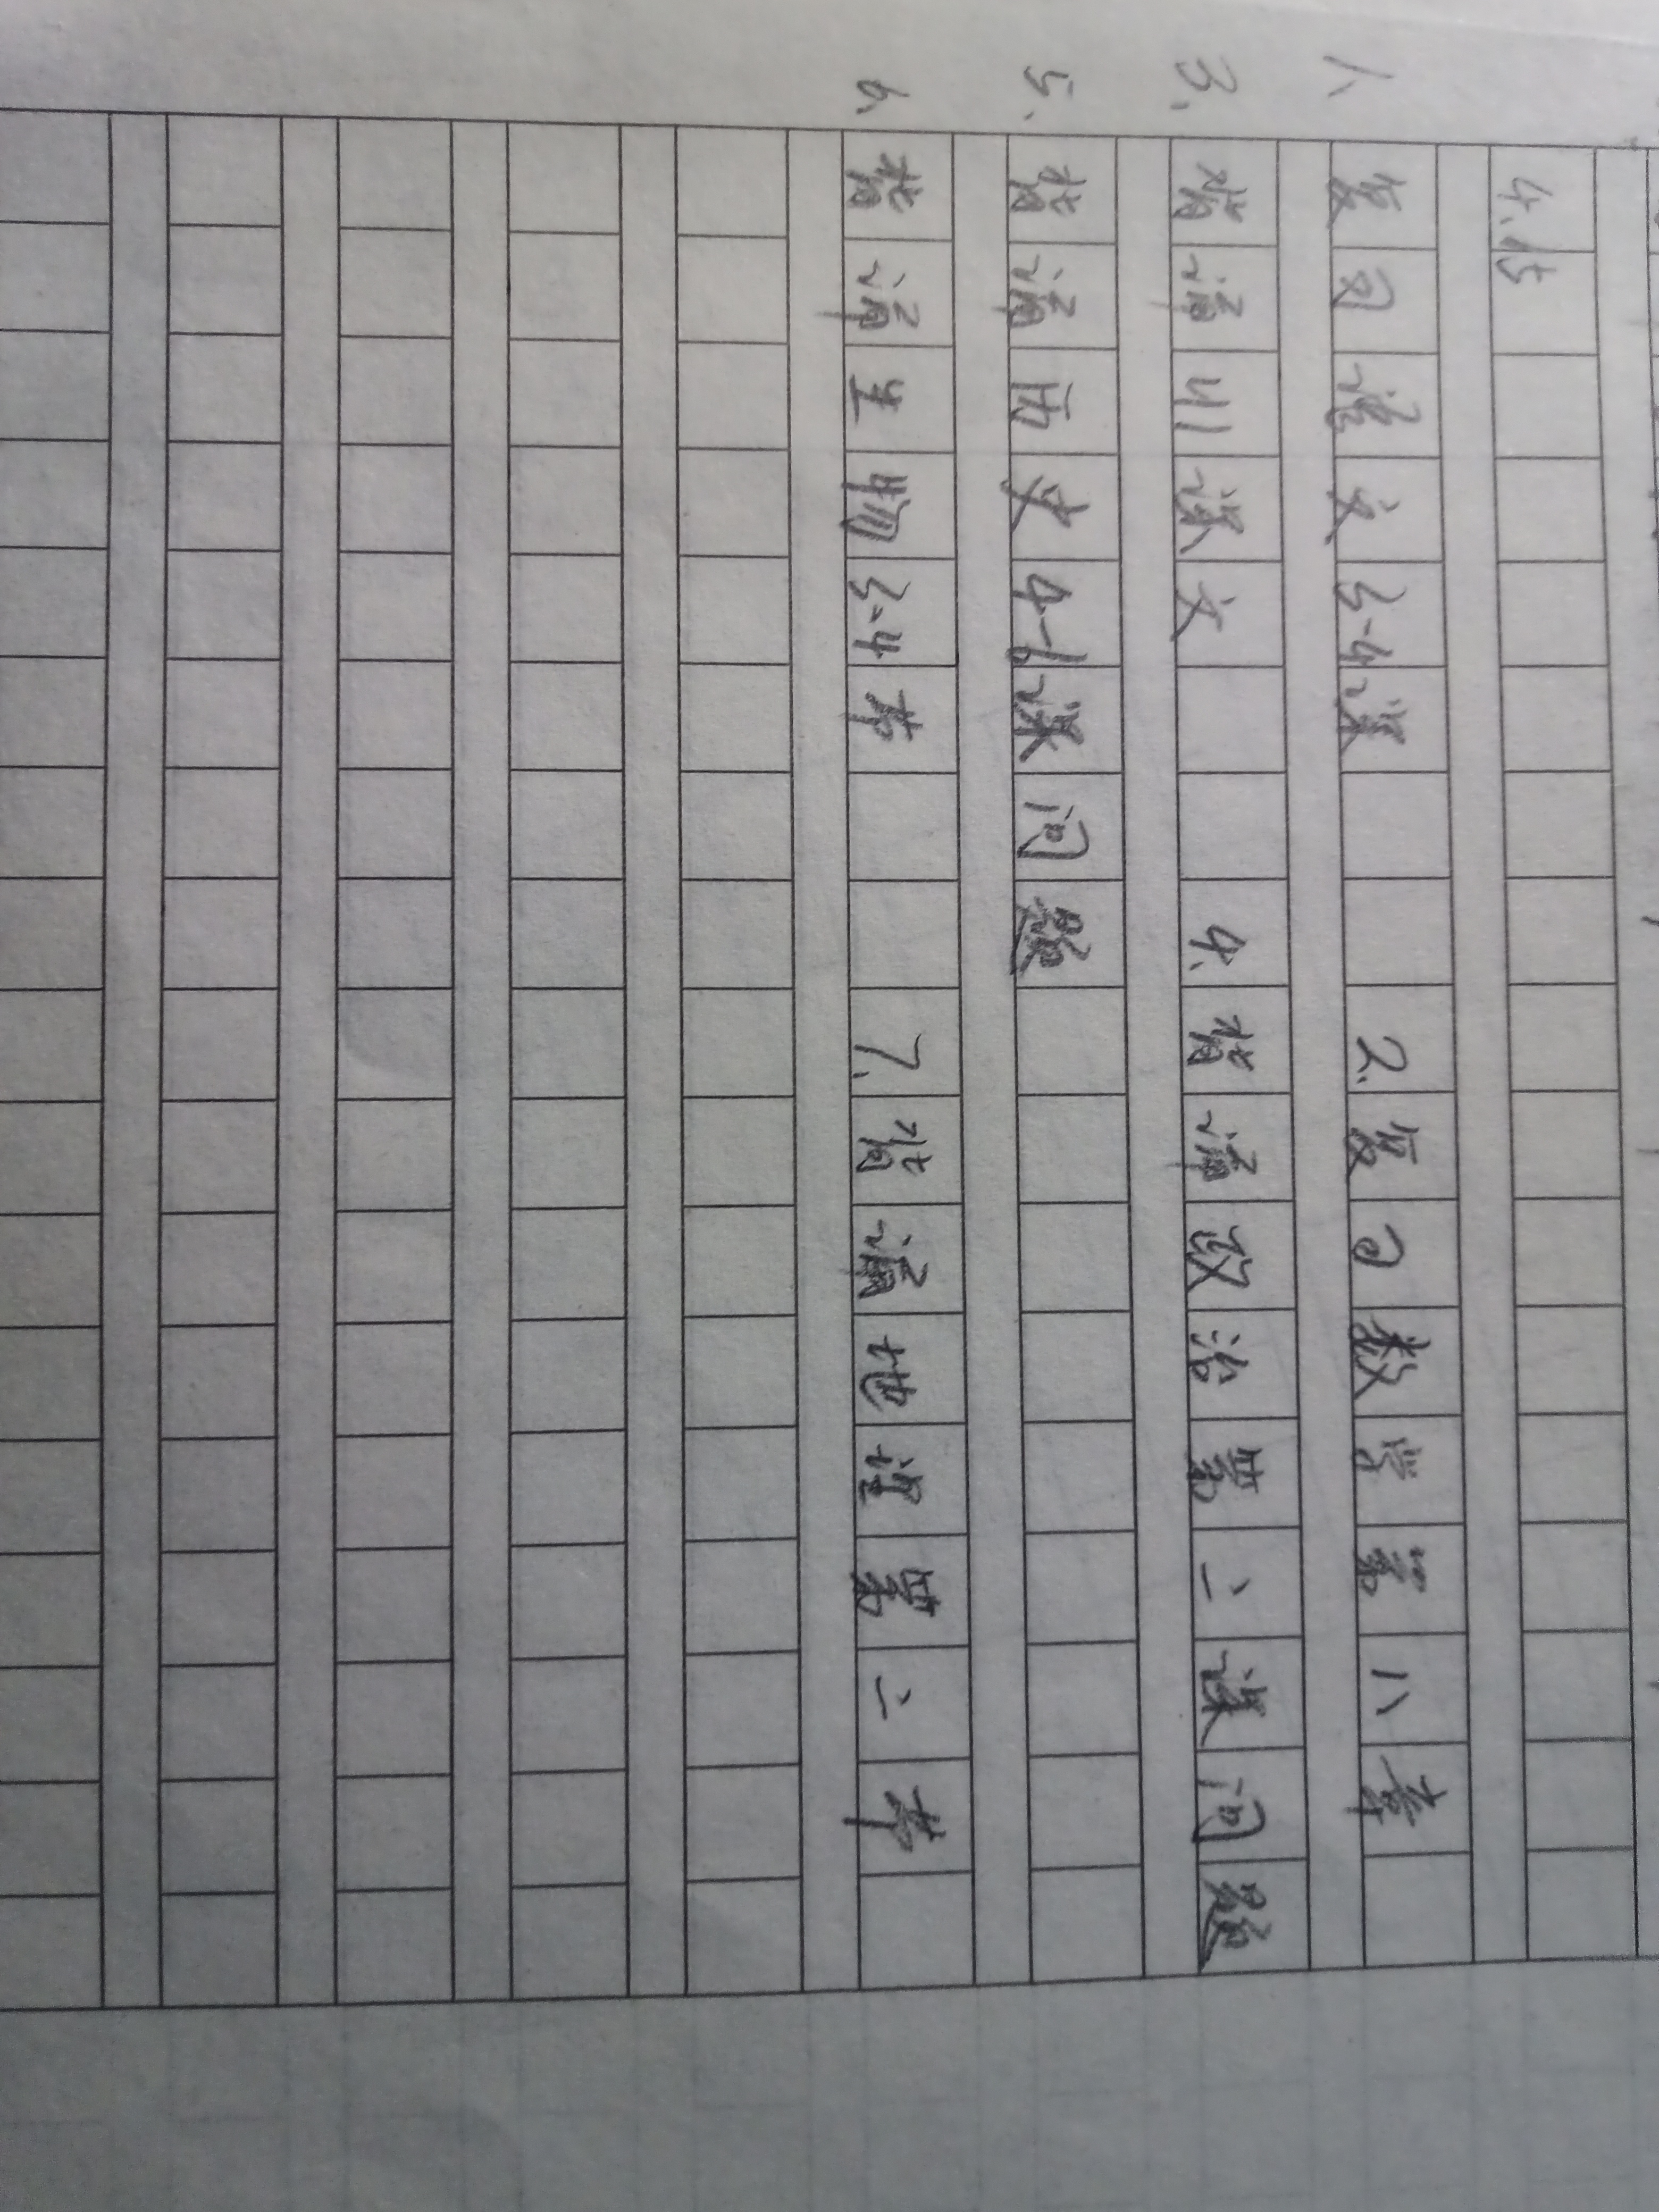 4.15
1、复习语文3-4课 2.复习数学第八章
3.背诵川课文 4.背诵政治第二课问题
5.背诵历史4-6课问题
6、背诵生物3-4章 7.背诵地理第二章